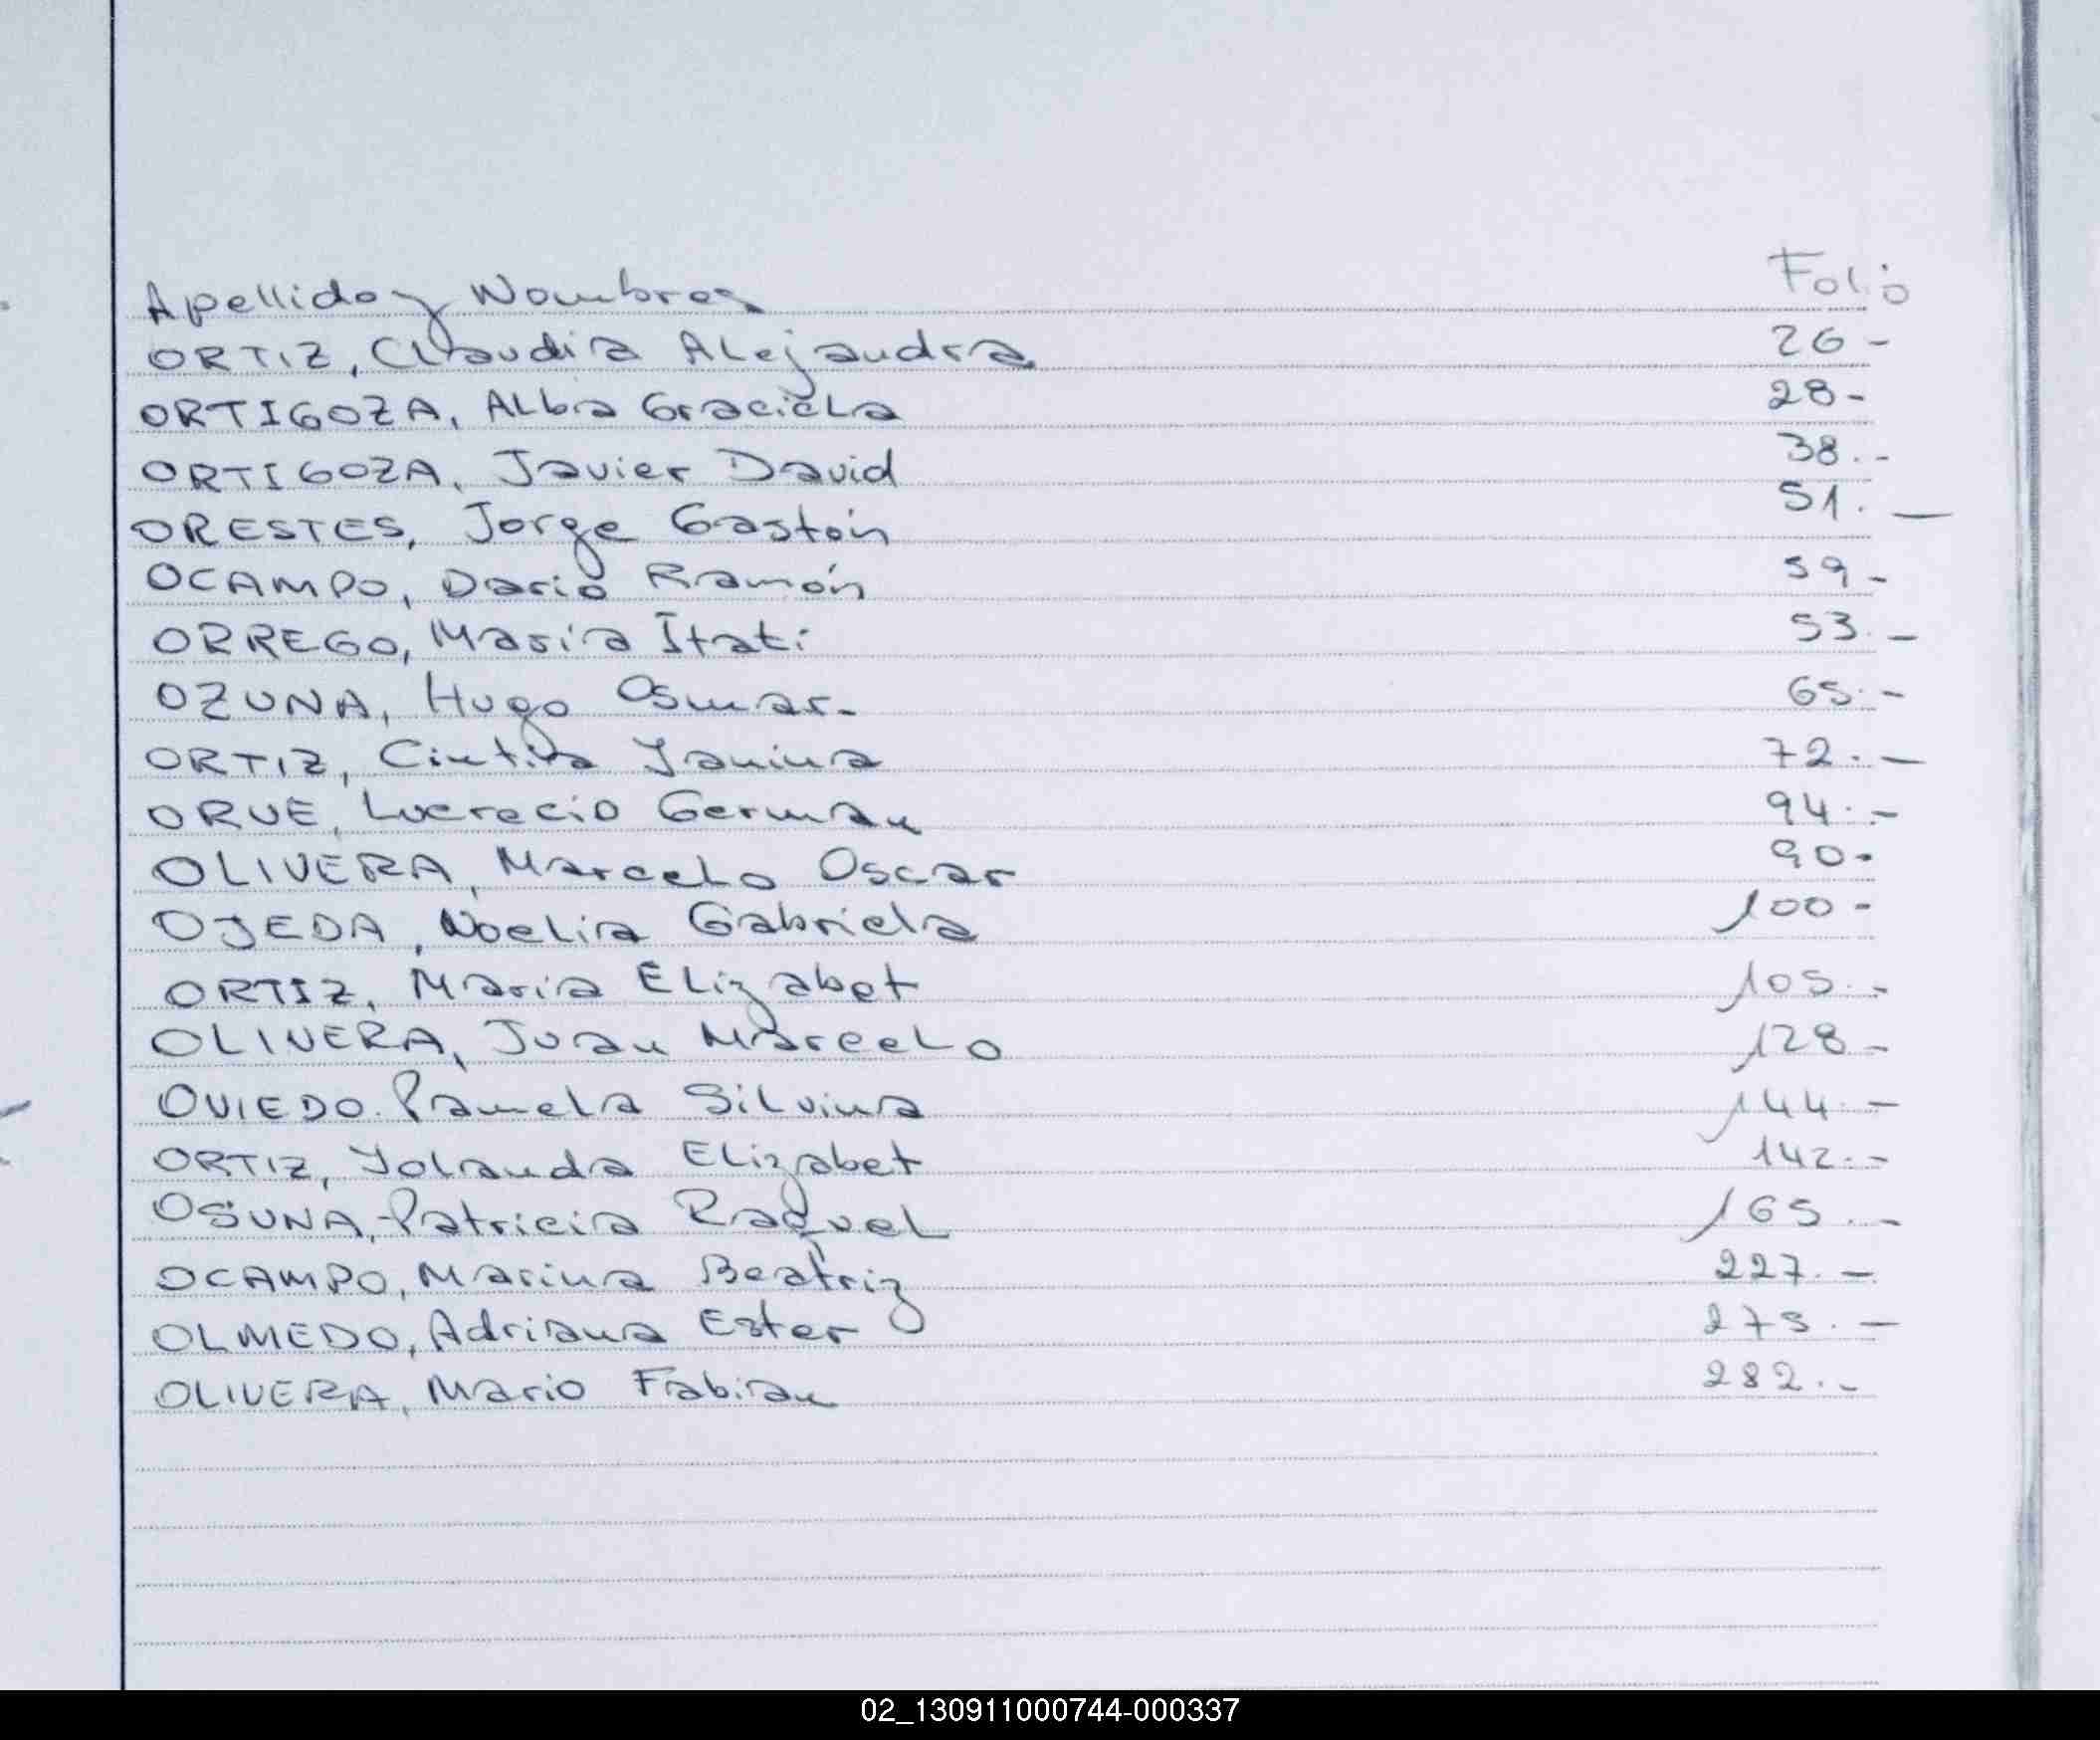 Apellido y Nombres Folio
ORTIZ, Claudia Alejandra 26-
ORTIGOZA, Alba Graciela 28-
ORTIGOZA, Javier David 38.-
ORESTES, Jorge Gastón 51.-
OCAMPO, Dario Ramón 59-
ORREGO, María Itatí 53.-
OZUNA, Hugo Osmar.- 65.-
ORTIZ, Cintia Janina 72.-
ORUE, Lucrecio German 94.-
OLIVERA, Marcelo Oscar 90-
OJEDA, Noelia Gabriela 100-
ORTIZ, María Elizabet 105.-
OLIVERA, Juan Marcelo 128-
OVIEDO. Pamela Silvina 144.-
ORTIZ, Yolanda Elizabet 142.-
OSUNA, Patricia Raquel 165.-
OCAMPO, Marina Beatriz 227.-
OLMEDO, Adriana Ester 275.-
OLIVERA, Mario Fabian 282.-
02_130911000744-000337